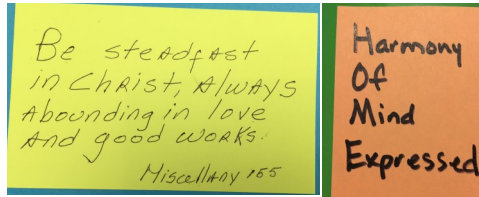 Be steadfast
in Christ, Always
Abounding in love
and good works.
Miscellany 155
Harmony
Of
Mind
Expressed